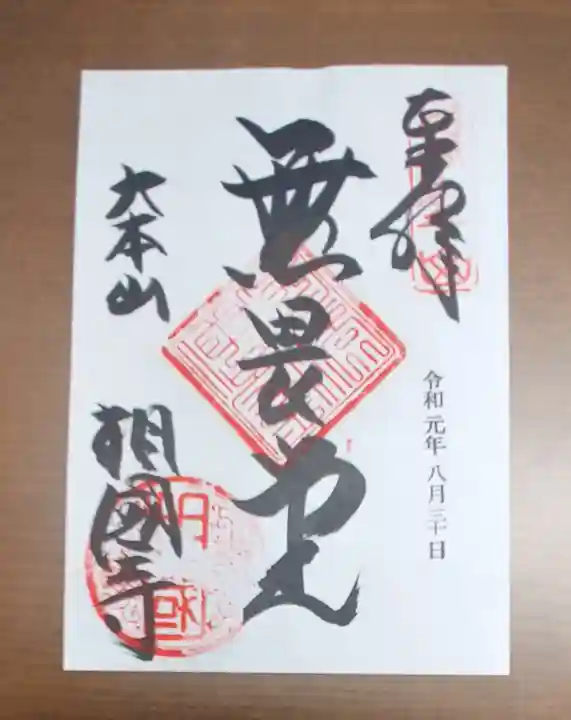 奉拝
令和元年八月三十日
無畏堂
大本山
相國寺